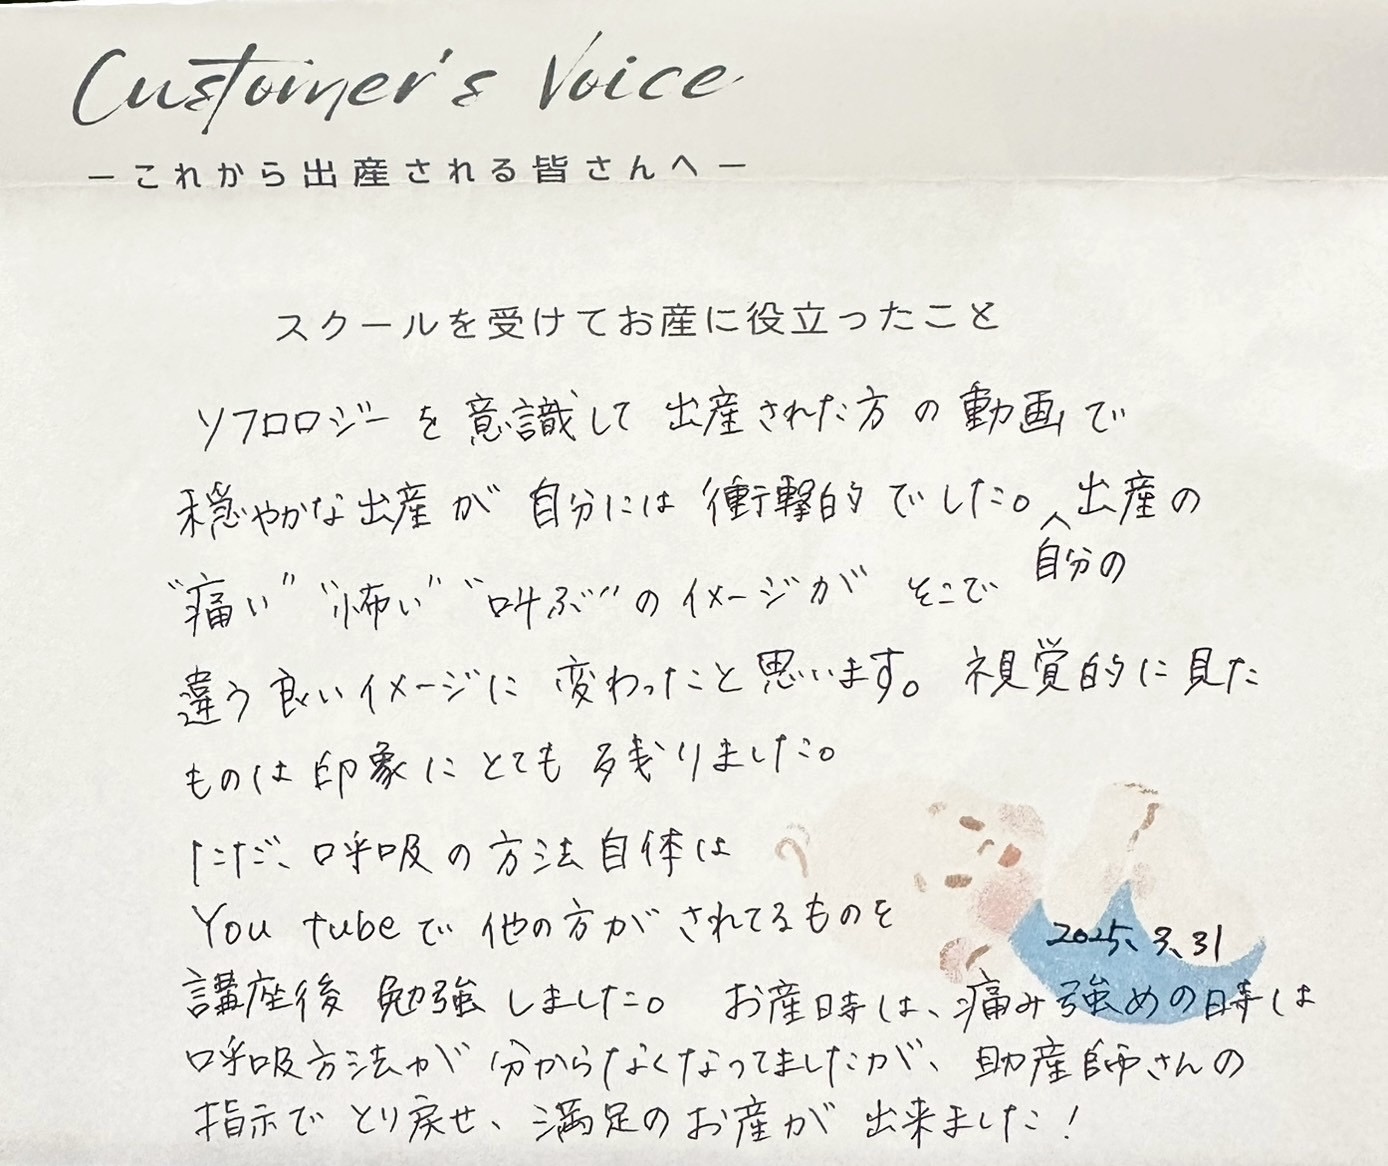 Customer's Voice
ーこれから出産される皆さんへー
スクールを受けてお産に役立ったこと
ソフロロジーを意識して出産された方の動画で
穏やかな出産が自分には衝撃的でした。出産の
自分の
"痛い" "怖い" "叫ぶ"のイメージが そこで
違う良いイメージに変わったこと思います。視覚的に見た
ものは印象にとても残りました。
ただ、呼吸の方法自体は
You tubeで他の方がされてるものを
2025、3、31
講座後勉強しました。 お産時は、痛み強めの時は
呼吸方法が分からなくなってましたが、助産師さんの
指示でとり戻せ、満足のお産が出来ました！